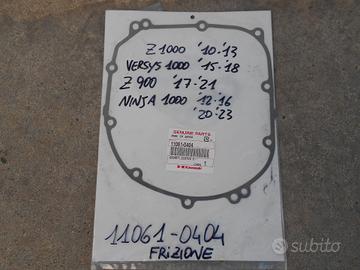 Z1000 '10-'13
VERSYS 1000 '15-'18
Z900 '17-'21
NINJA 1000 '12-'16
'20-'23
GENUINE PARTS
11061-0404
Kawasaki
11061-0404
FRIZIONE
subito